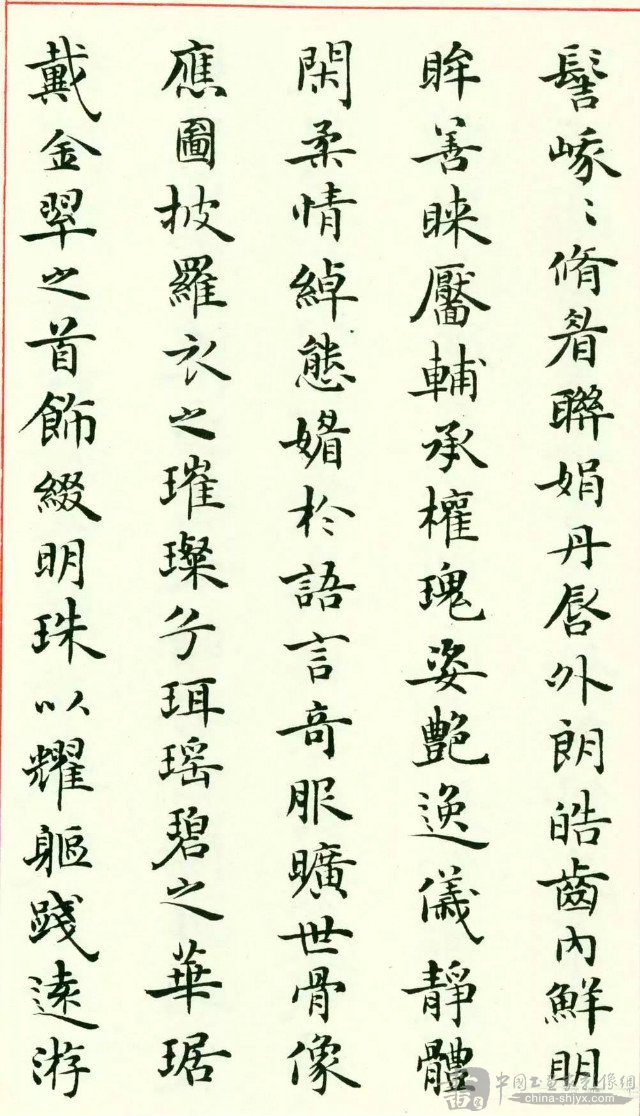 髻峩〻脩眉聯娟丹唇外朗皓齒內鮮明
眸善睞靨輔承權瑰姿艷逸儀靜體
閑柔情綽態媚於語言奇服曠世骨像
應圖披羅衣之璀璨兮珥瑶碧之華琚
戴金翠之首飾綴明珠以耀軀踐遠游
中国书画家肖像網
www.china-shjyx.com